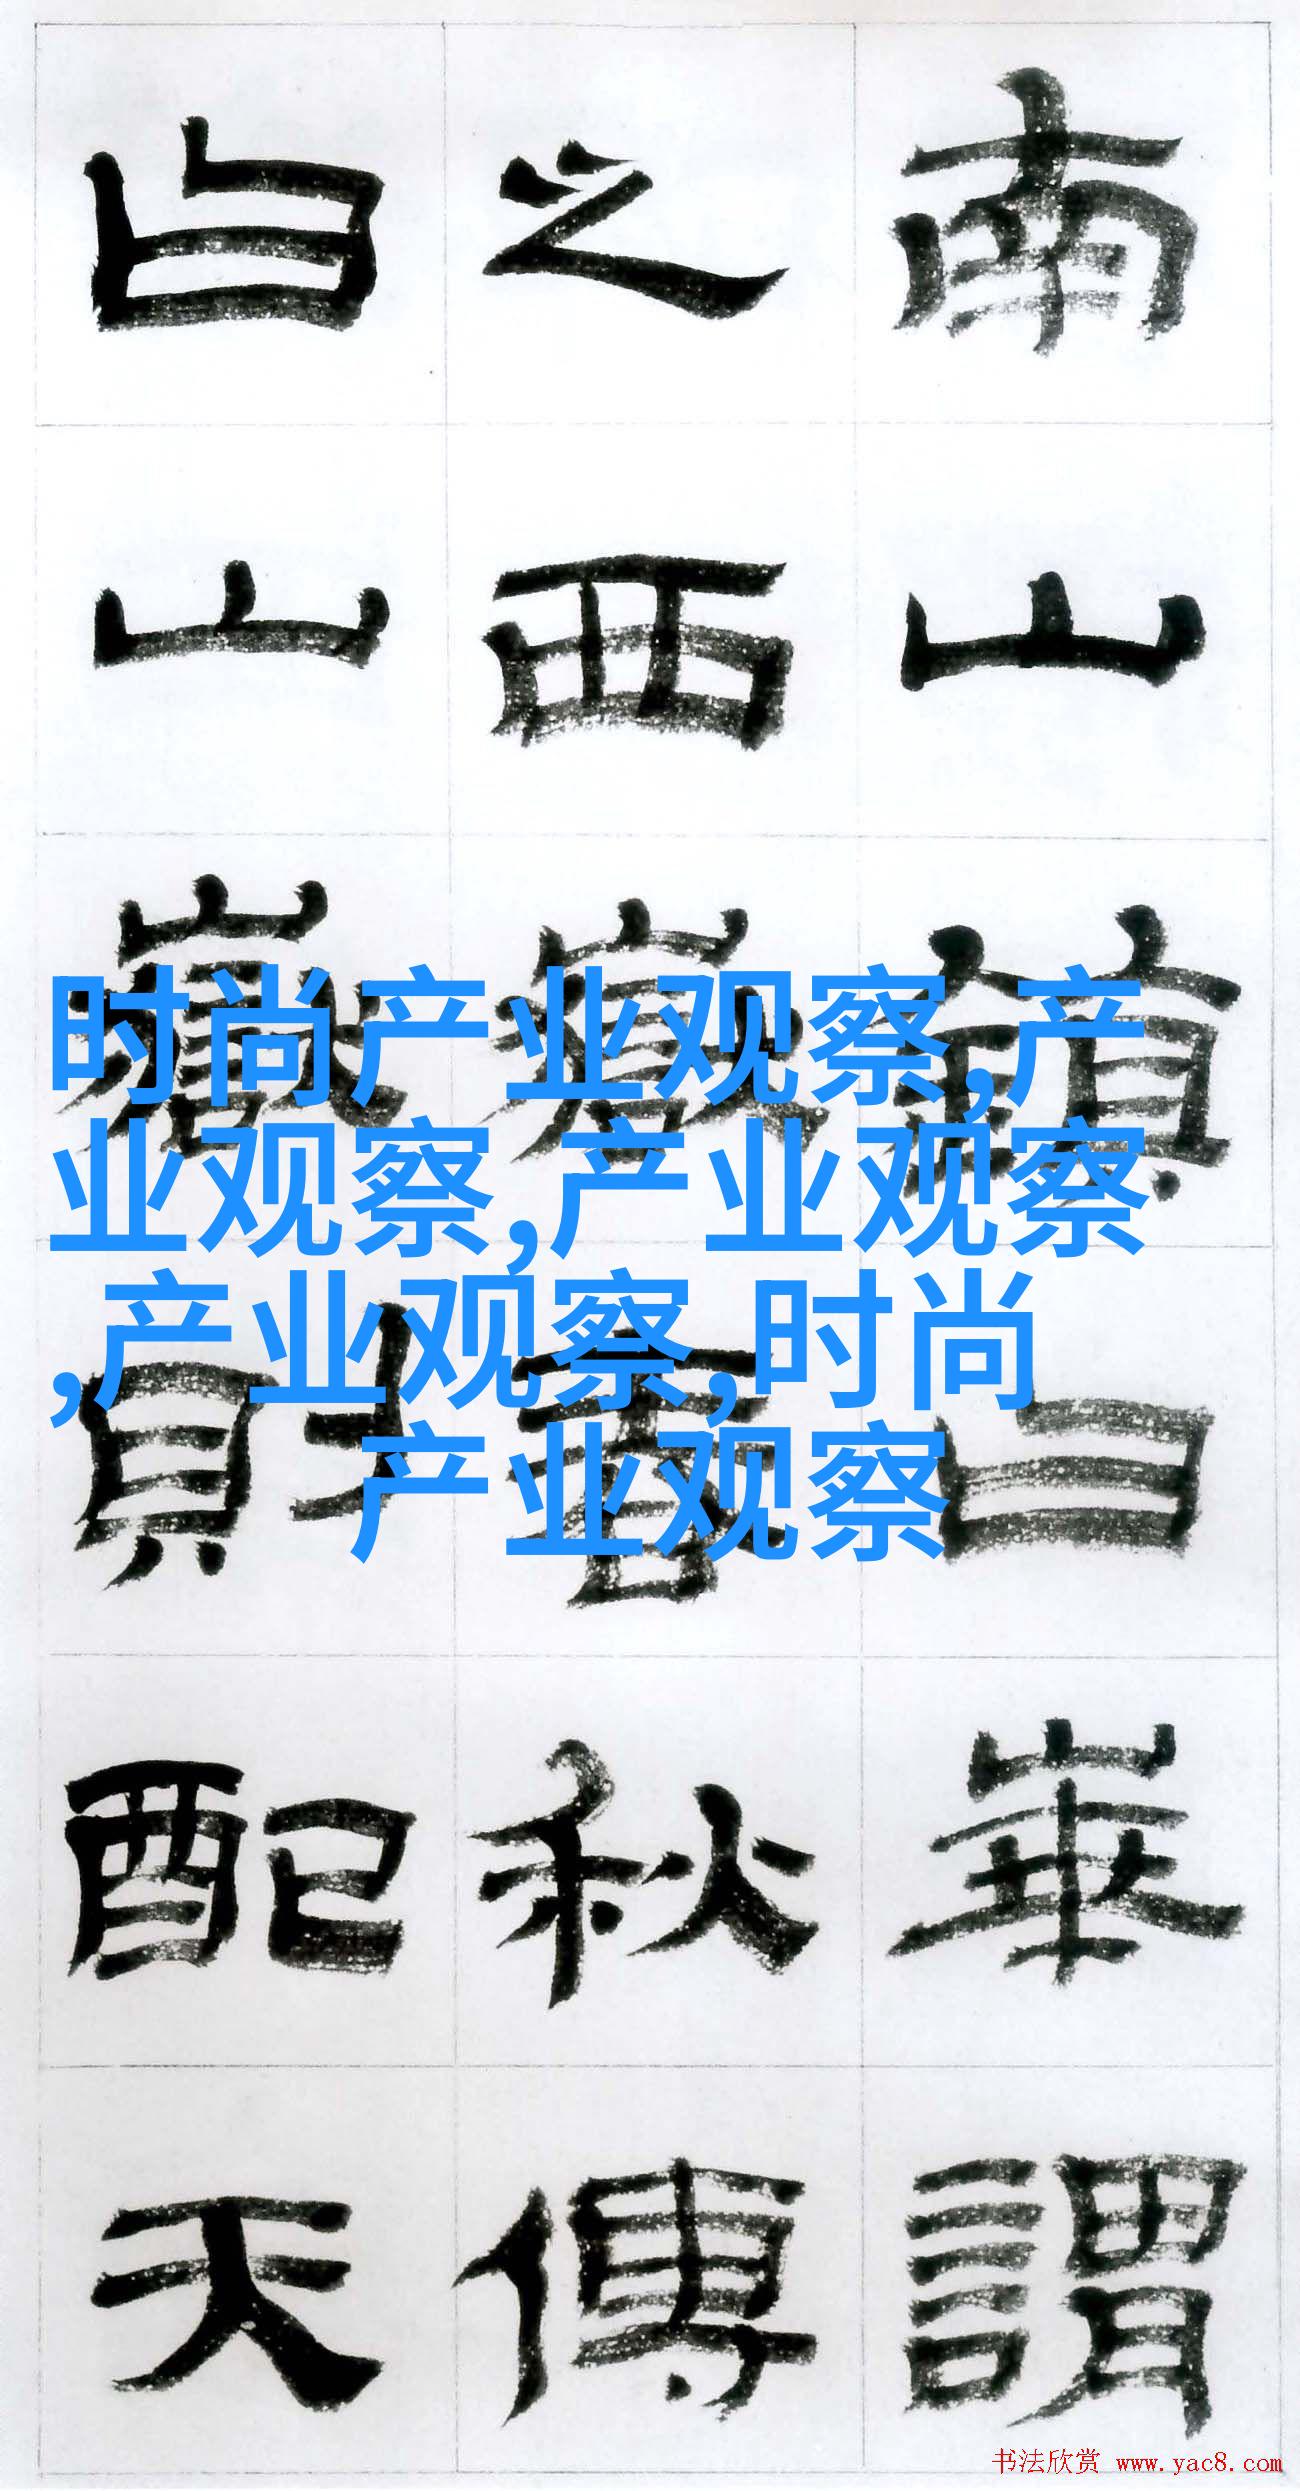 南山鎮曰崋謂
之西嶽春秋傳
曰山嶽則配天
时尚产业观察,产
业观察,产业观察
,产业观察,时尚
产业观察
书法欣赏 www.yac8.com